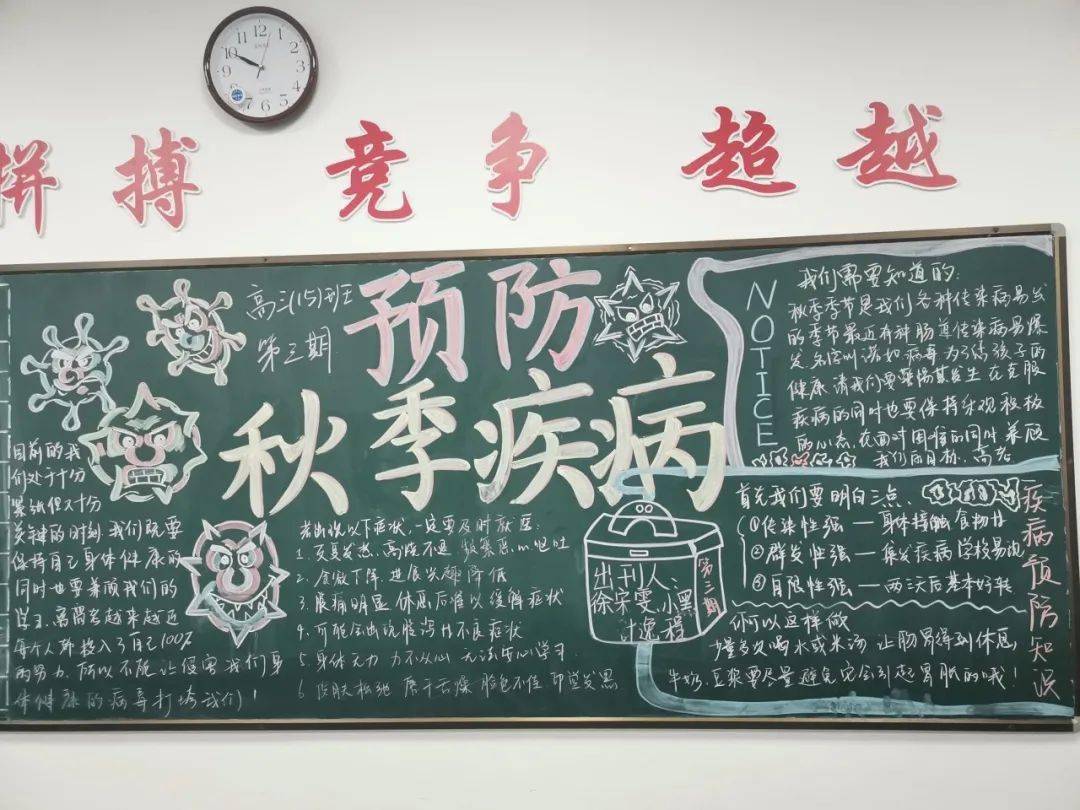 拼搏 竞争 超越
高三(15)班
第三期
预防
秋季疾病
目前的我
们处于十分
紧张但又十分
关键的时刻 我们既要
保持自己身体健康的
同时也要兼顾我们的
离高考越来越近
每个人都投入了自己100%
的努力 所以不能让侵害我们身
体健康的病毒打垮我们!
若出现以下症状,一定要及时就医:
1.
2. 食欲下降 进展
3. 腹痛明显 休息后难以缓解症状
4. 可能会出现腹泻 不良症状
5. 身体无力 力不从心 无法安心学习
6. 皮肤松弛 唇干舌燥 脸色不佳
出刊人:
徐宋雯.小黑
第三期
NOTICE
我们需要知道的:
秋季季节是我们各种传染病易发
的季节最近有种肠道传染病易爆
发 名字叫诺如病毒 为了
健康 请我们要 发生 在克服
疾病的同时也要保持乐观积极
的心态 在面对困难的同时 兼顾
我们的目标、高考
首先我们要明白三点、
①传染性强 — 身体接触 食物
②群发性强 — 集发疾病 学校易
③自限性强 — 两三天后基本好转
你可以这样做
少量多次喝水或米汤 让肠胃得到休息
牛奶、豆浆要尽量避免 它会引起胃胀的哦!
疾病预防知识